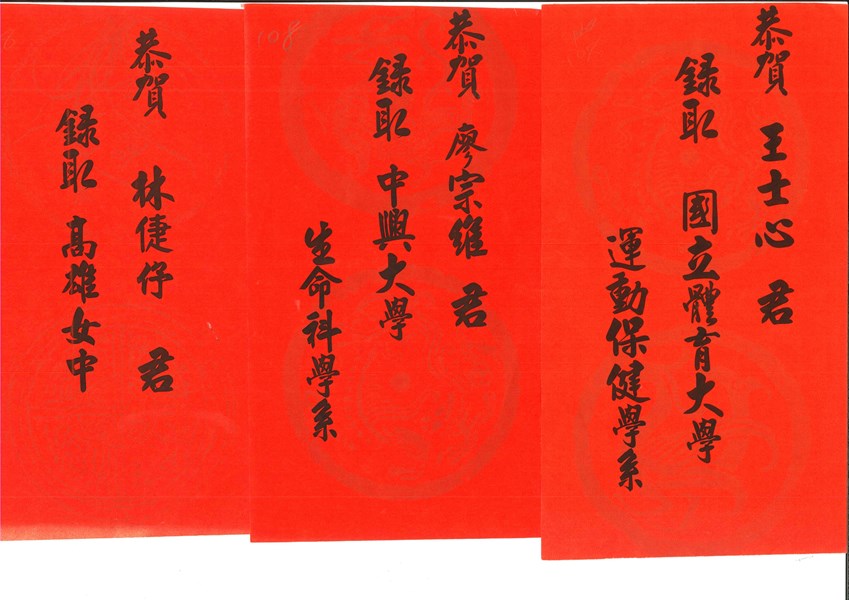 恭賀 王士心 君
録取 國立體育大學
運動保健學系
恭賀 廖宗維 君
録取 中興大學
生命科學系
108
恭賀 林倢伃 君
録取 高雄女中